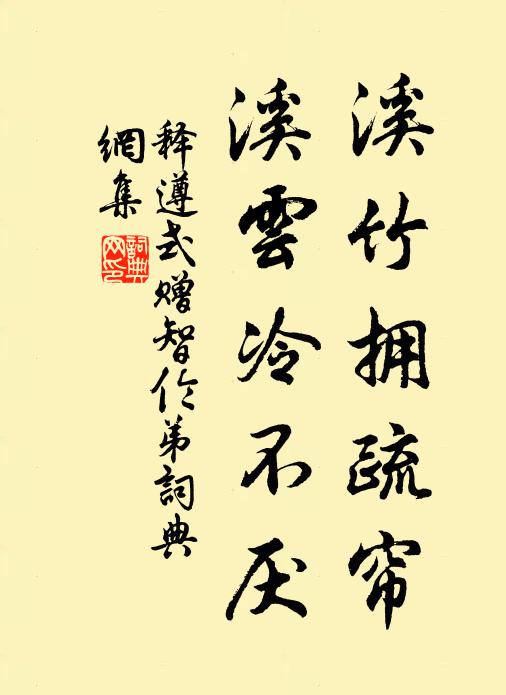 溪竹拥疏帘
溪雲冷不厌
释遵式赠智伦弟詞典
網集
詞典网印